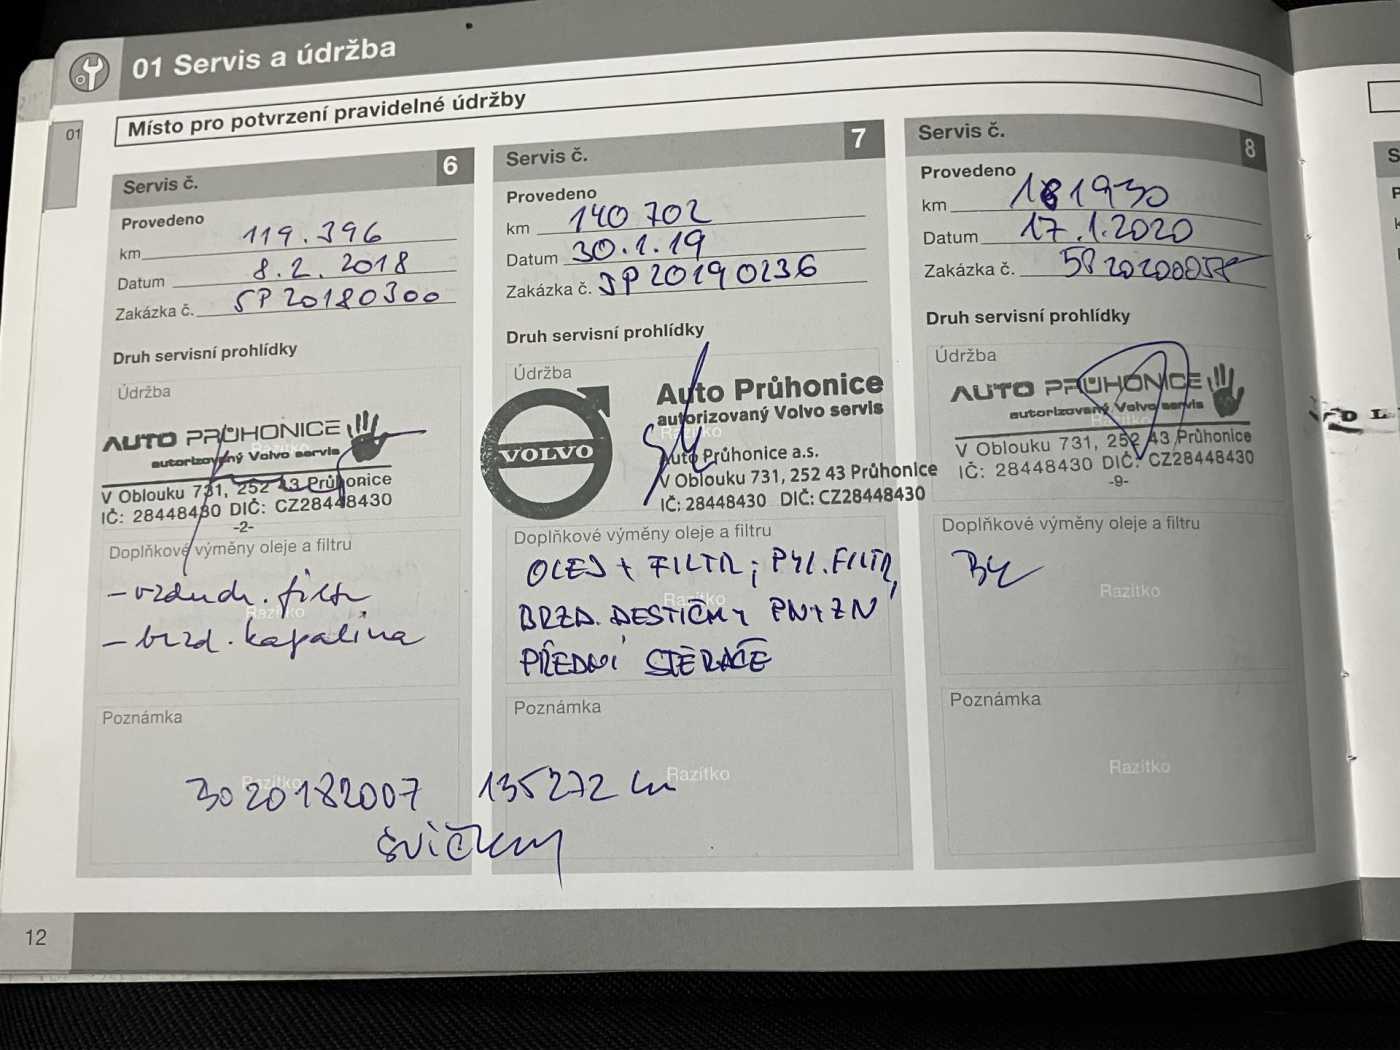 01 Servis a údržba
01
Místo pro potvrzení pravidelné údržby
Servis č. 6
Provedeno
km 119.396
Datum 8.2.2018
Zakázka č. SP20180300
Druh servisní prohlídky
Údržba
AUTO PRŮHONICE
autorizovaný Volvo servis
V Oblouku 731, 252 43 Průhonice
IČ: 28448430 DIČ: CZ28448430
-2-
Doplňkové výměny oleje a filtru
- vzduch. filtr
Razítko
- brzd. kapalina
Poznámka
Razítko
3020182007 135272 km
svíčky
Servis č. 7
Provedeno
km 140 702
Datum 30.1.19
Zakázka č. SP20190236
Druh servisní prohlídky
Údržba
VOLVO
Auto Průhonice
autorizovaný Volvo servis
Razítko
Auto Průhonice a.s.
V Oblouku 731, 252 43 Průhonice
IČ: 28448430 DIČ: CZ28448430
Doplňkové výměny oleje a filtru
OLEJ + FILTR; PYL. FILTR,
Razítko
BRZD. DESTIČKY PN+ZN
PŘEDNÍ STĚRAČE
Poznámka
Razítko
Servis č. 8
Provedeno
km 161930
Datum 17.1.2020
Zakázka č.
Druh servisní prohlídky
Údržba
AUTO PRŮHONICE
autorizovaný Volvo servis
Razítko
V Oblouku 731, 252 43 Průhonice
IČ: 28448430 DIČ: CZ28448430
-9-
Doplňkové výměny oleje a filtru
Razítko
Poznámka
Razítko
12